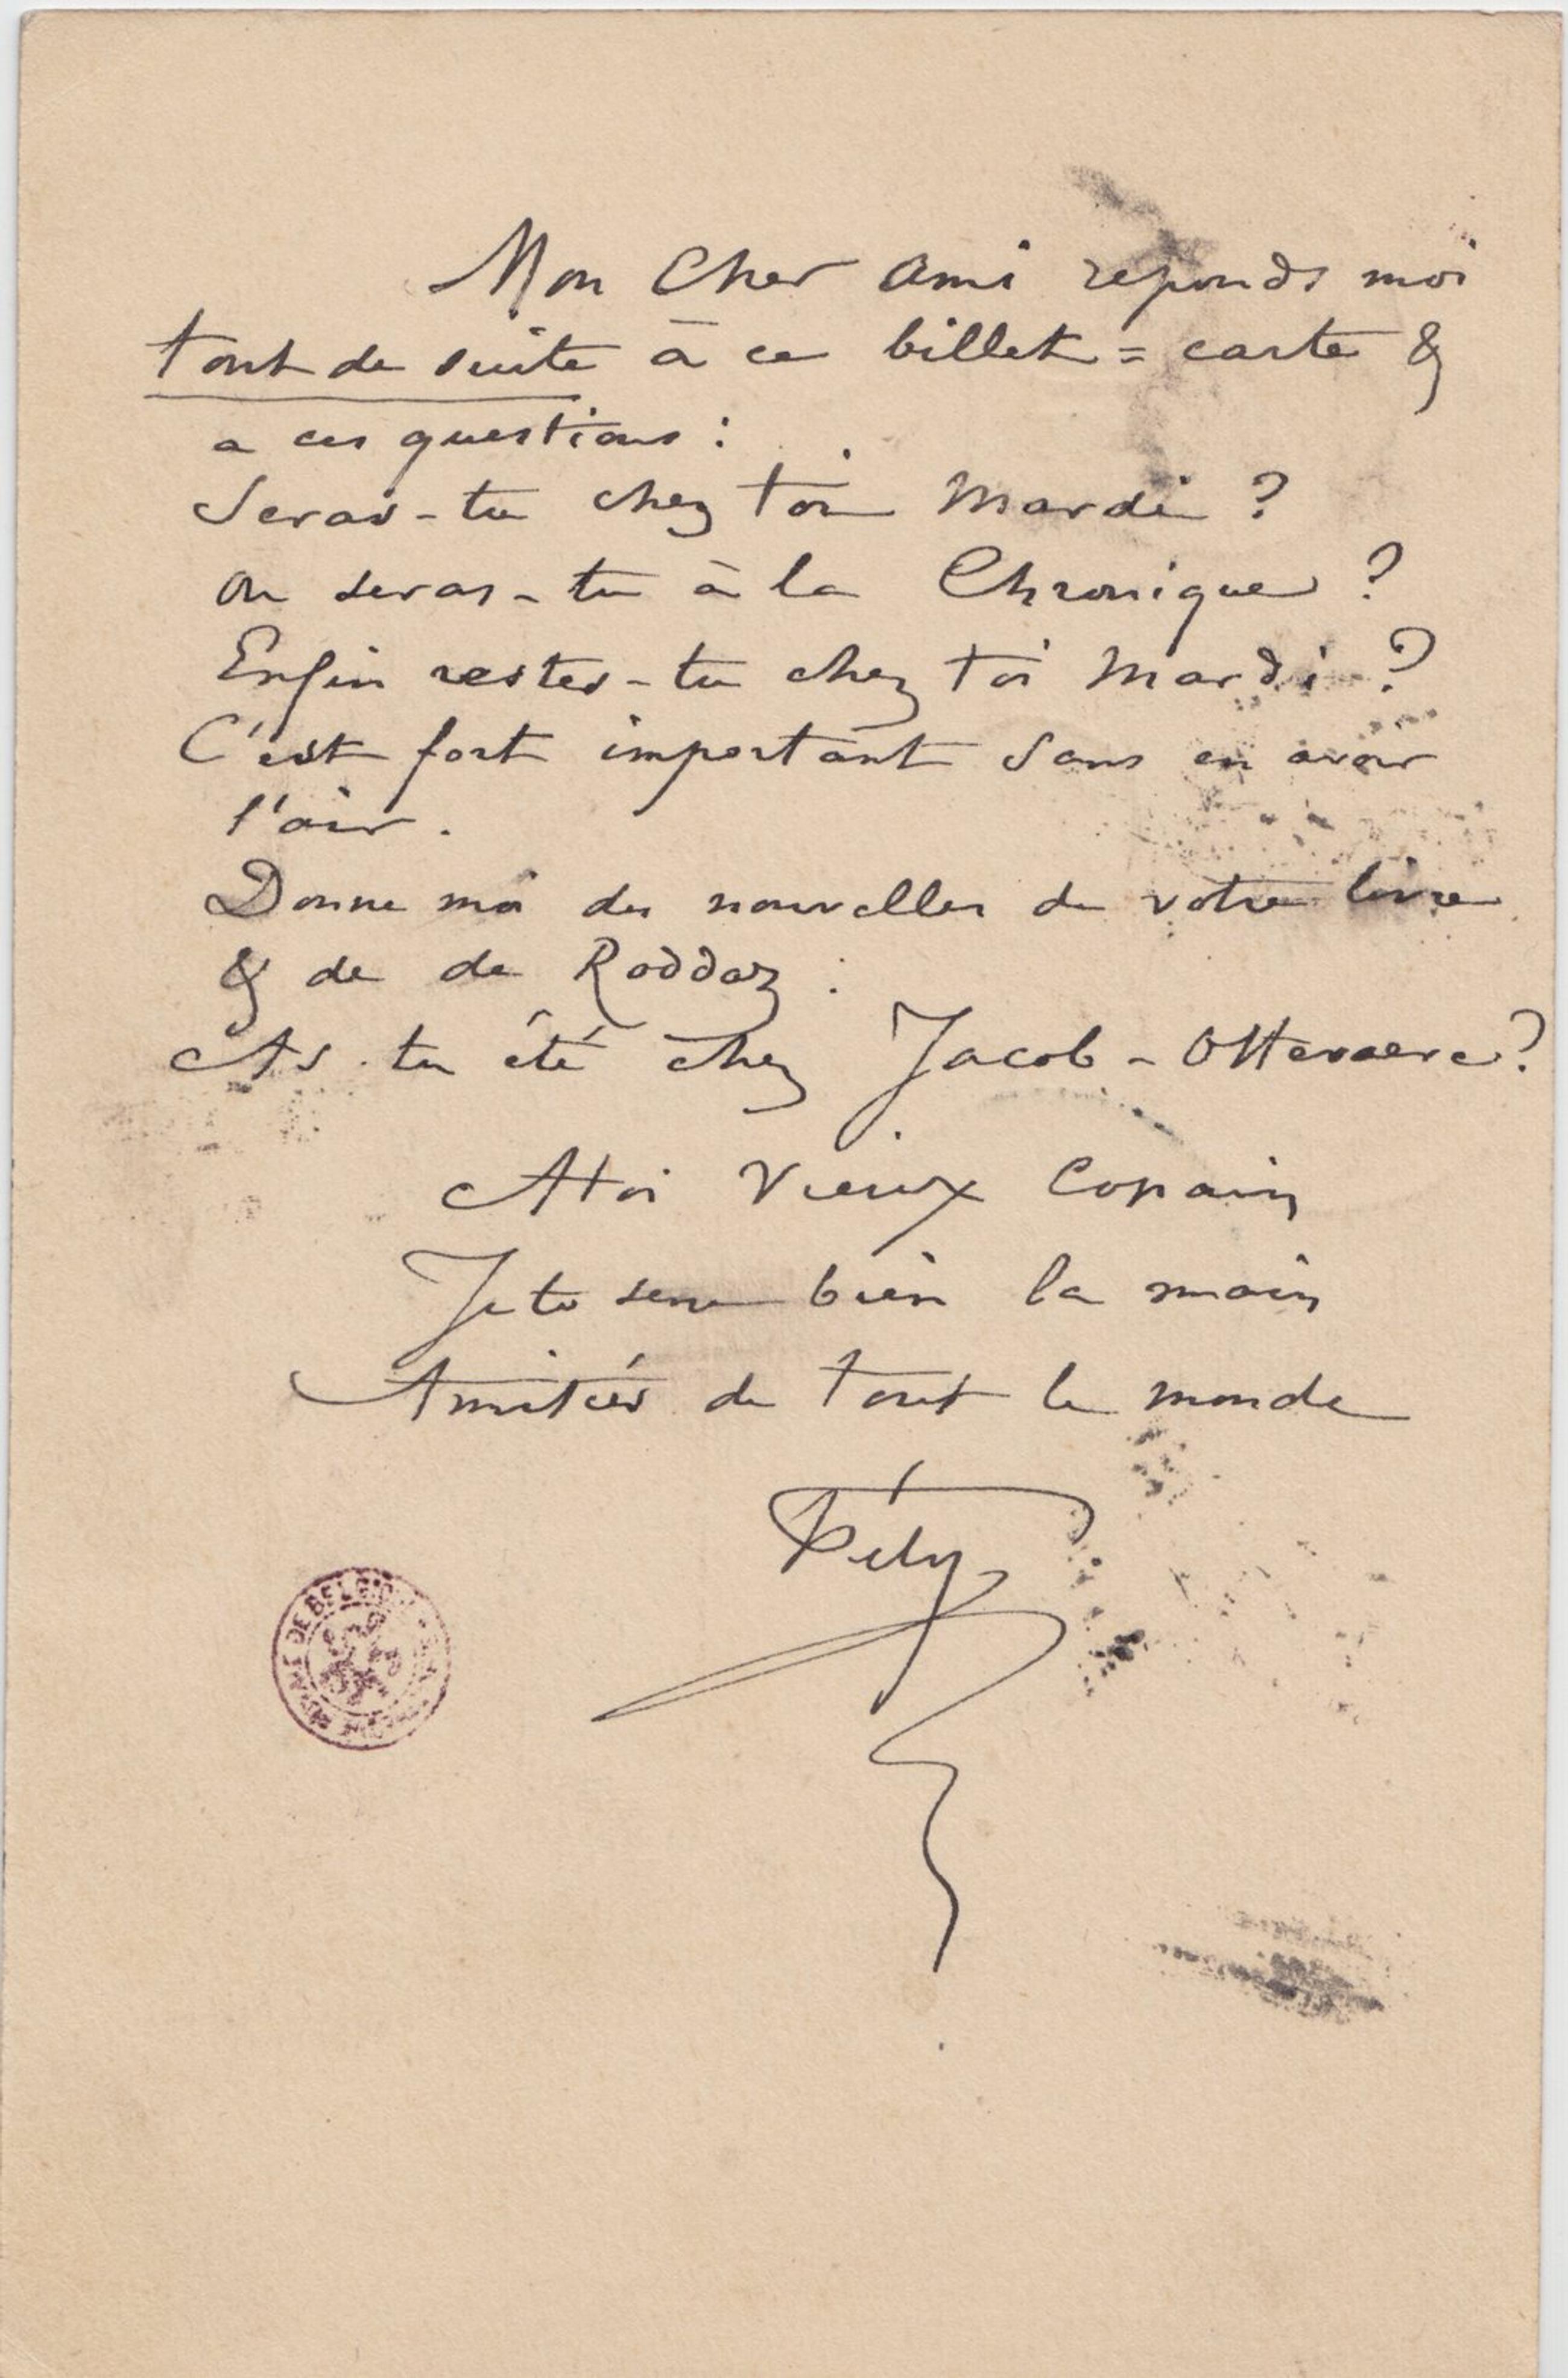 Mon Cher Ami reponds moi
tout de suite à ce billet = carte &
a ces questions :
Seras-tu chez toi Mardi ?
ou seras-tu à la Chronique ?
Enfin restes-tu chez toi Mardi ?
C'est fort important sans en avoir
l'air.
Donne moi des nouvelles de votre livre
& de de Roddaz :
As-tu été chez Jacob-Ottevaere ?
A toi Vieux Copain
Je te serre bien la main
Amitiés de tout le monde
Fély
DE BELGIQUE